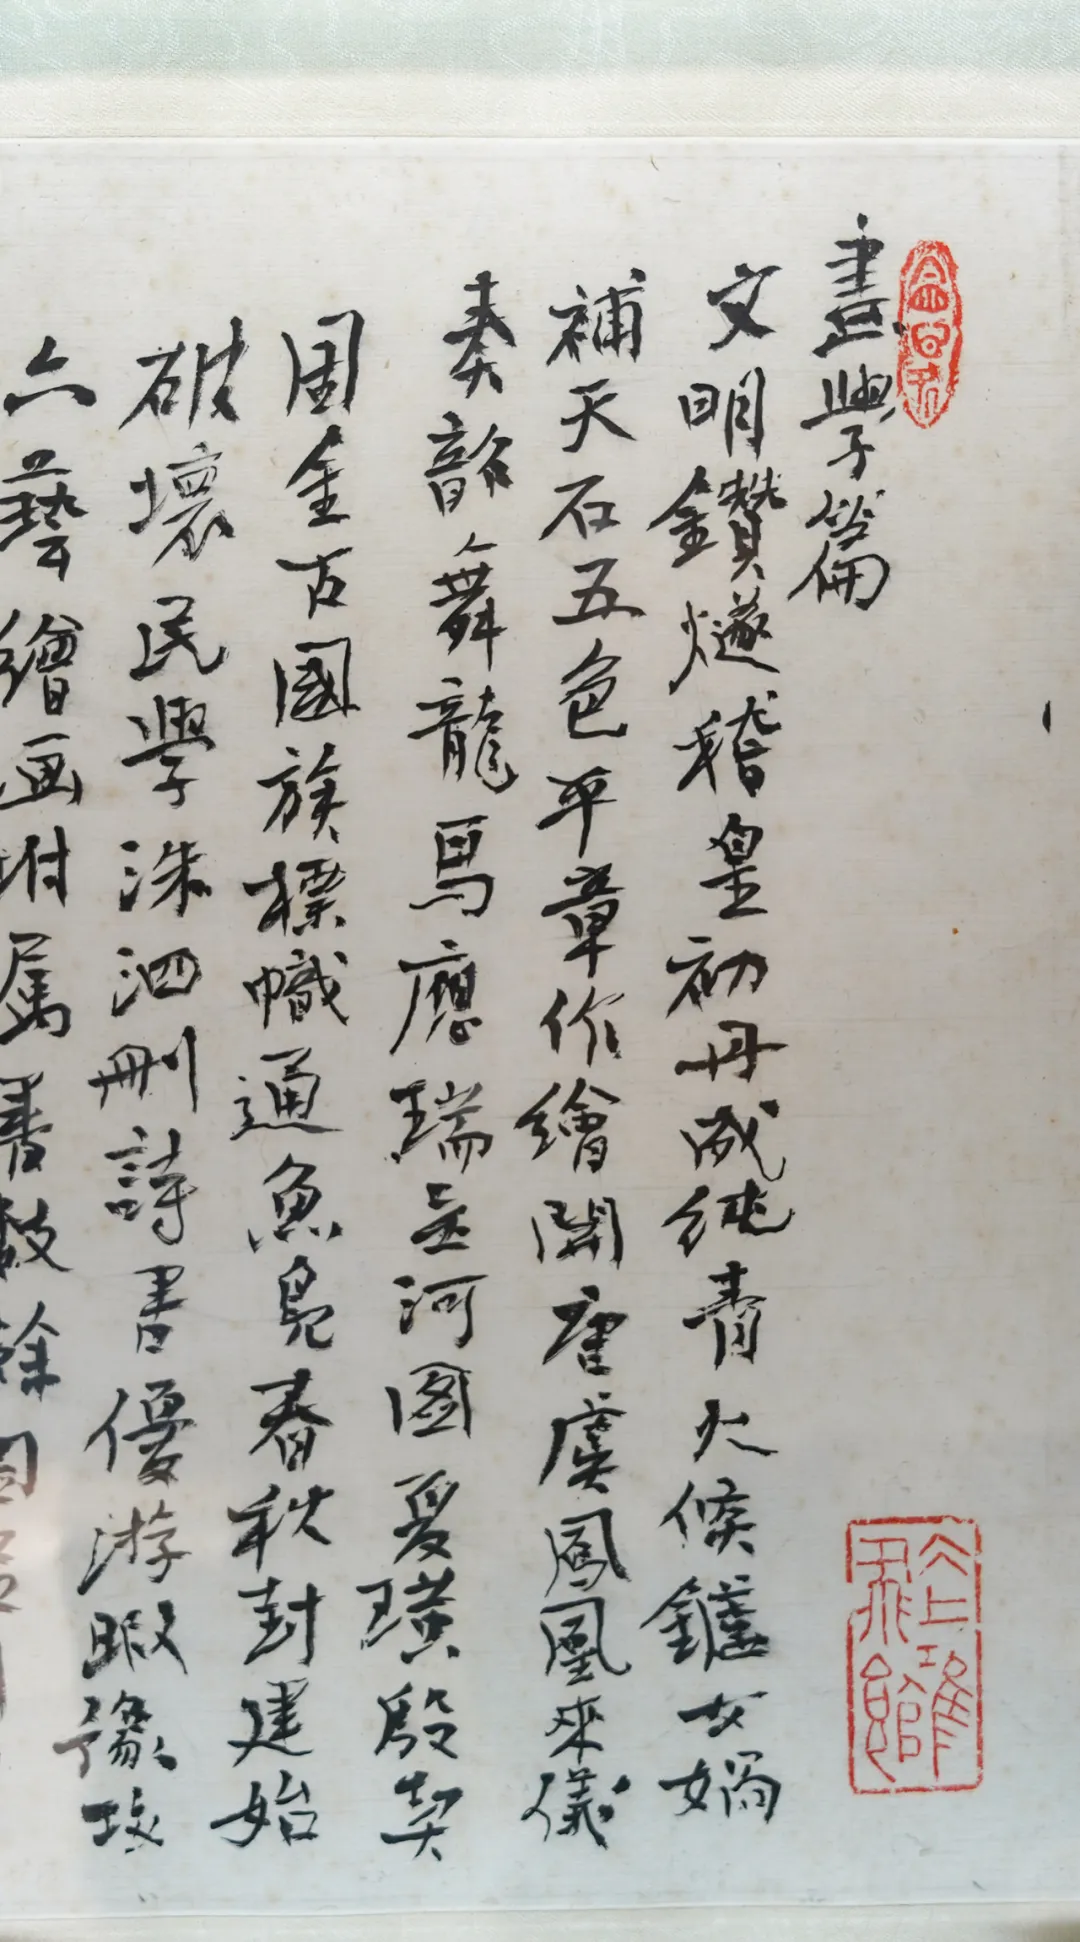 畫學篇
文明鑽燧稽皇初丹成純青火候鑪女媧
補天石五色平章作繪開唐虞鳳凰來儀
奏韶舞龍馬應瑞呈河圖夏璜殷契
周金古國族標幟通魚鳧春秋封建始
破壞民學洙泗刪詩書優游暇豫攻
六藝繪画坿屬書數餘
冰上鴻飛館